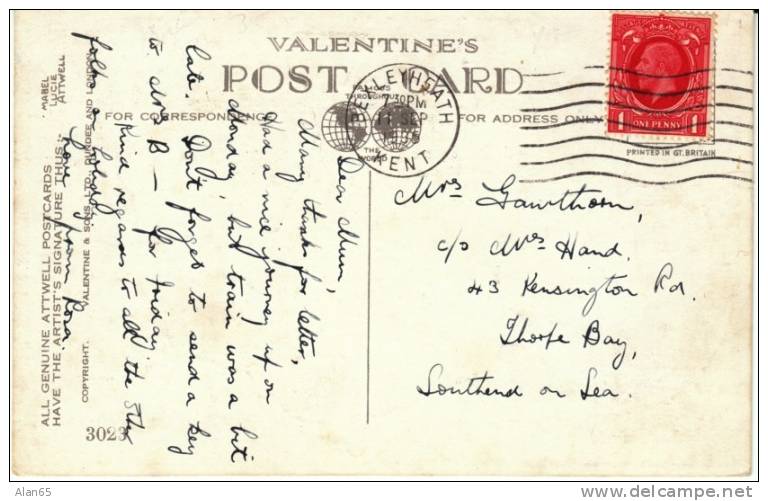 VALENTINE'S
POST CARD
FAMOUS
THROUGHOUT
THE
WORLD
FOR CORRESPONDENCE
FOR ADDRESS ONLY
BEXLEYHEATH
7:30PM
11 SEP
KENT
1 ONE PENNY 1
PRINTED IN GT. BRITAIN
Dear Mum,
Many thanks for letter,
Had a nice journey up on
Monday, but train was a bit
late. Don't forget to send a key
to Mrs B — for Friday.
Kind regards to all the other
folks
from
Mrs Gawthorn,
c/o Mrs Hand.
43 Kensington Rd.
Thorpe Bay,
Southend on Sea.
MABEL
LUCIE
ATTWELL
ALL GENUINE ATTWELL POSTCARDS
HAVE THE ARTIST'S SIGNATURE THUS:-
COPYRIGHT. VALENTINE & SONS, LTD., DUNDEE AND LONDON
3023
Alan65
delcampe.net